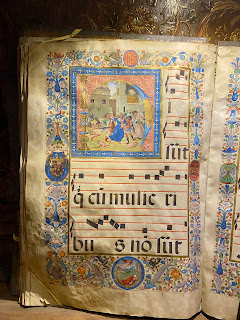 sūt
q̄ cū mulie ri
bu s nō sūt